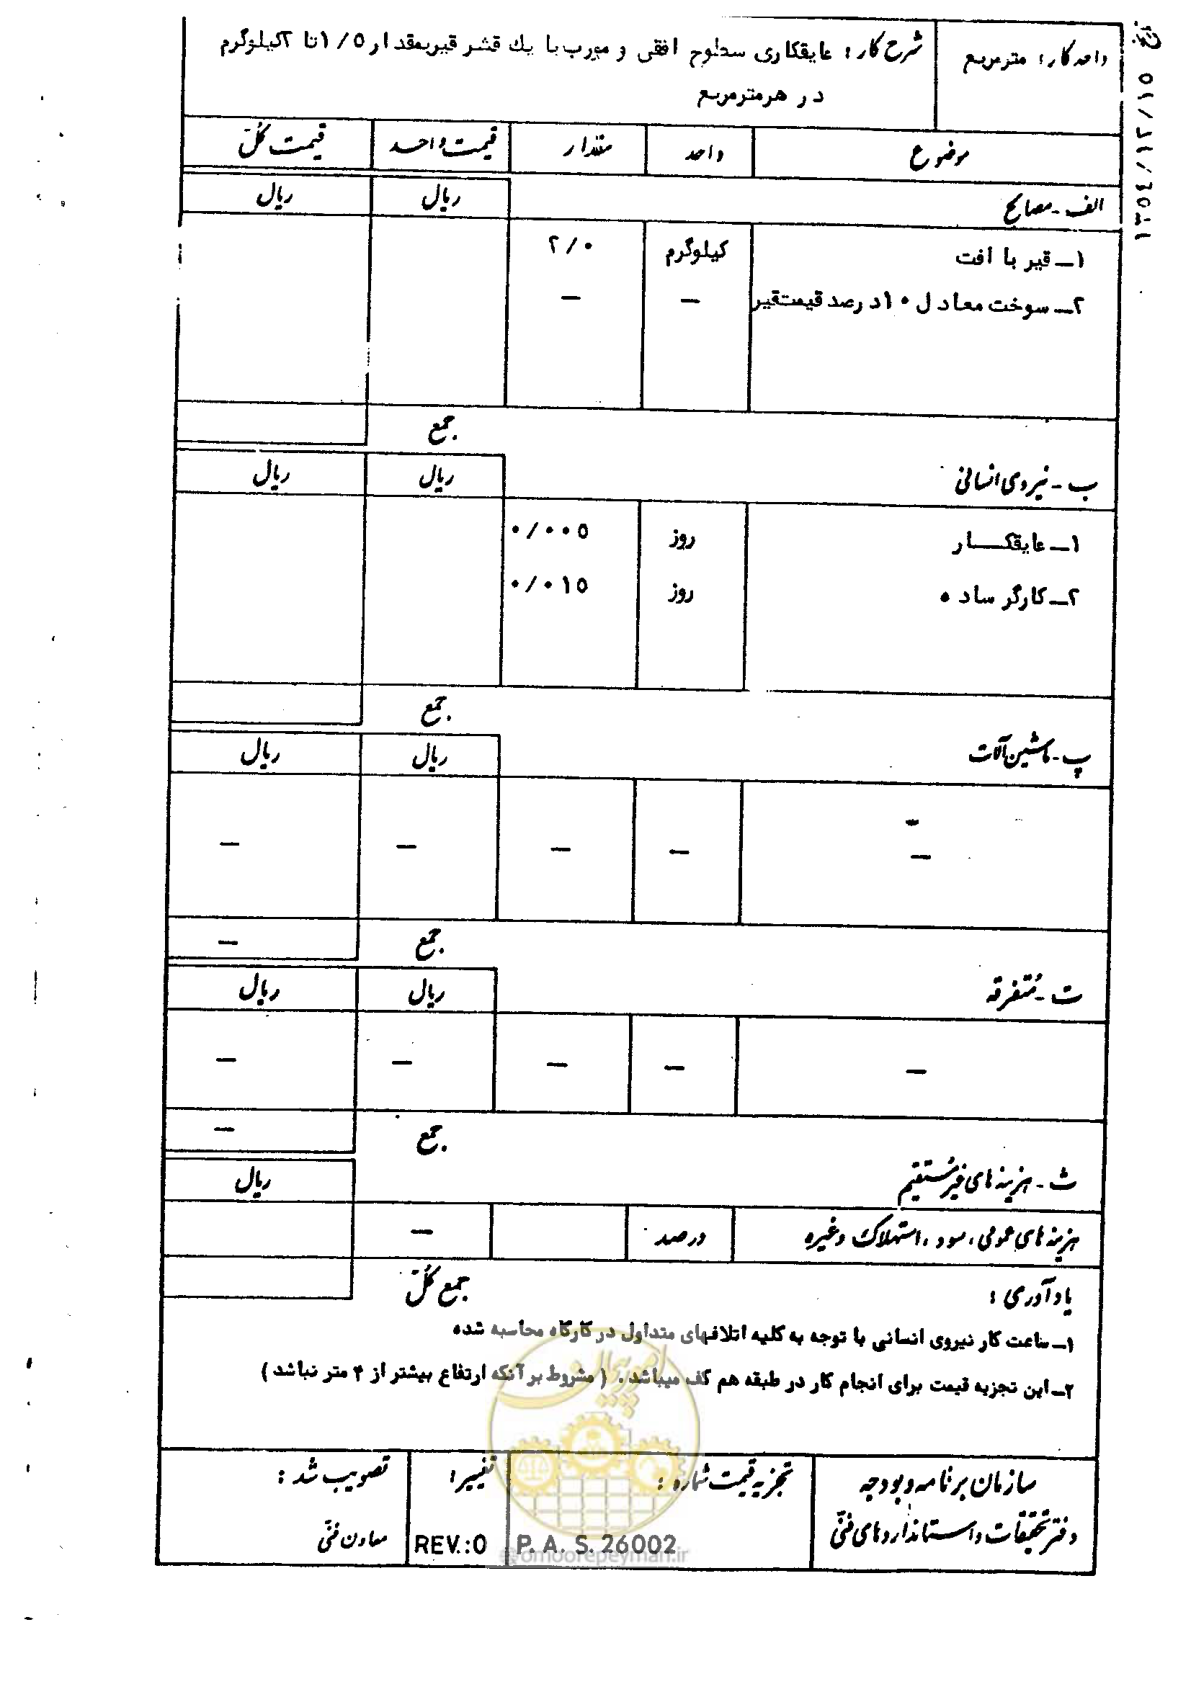 واحد کار : مترمربع
شرح کار : عایقکاری سطوح افقی و مورب با یك قشر قیربمقدار ۱/۵ تا ۲کیلوگرم
در هرمترمربع
موضوع واحد مقدار قیمت واحد قیمت کلّ
الف - مصالح ریال ریال
۱ـ قیر با افت کیلوگرم ۲/۰
۲ـ سوخت معادل ۱۰درصد قیمتقیر — —
جمع
ب - نیروی انسانی ریال ریال
۱ـ عایقکـار روز ۰/۰۰۵
۲ـ کارگر ساده روز ۰/۰۱۵
جمع
پ - ماشین آلات ریال ریال
— — — — —
جمع —
ت - مُتفرقه ریال ریال
— — — — —
جمع —
ث - هزینه های غیرمُستقیم ریال
هزینه های عمومی ، سود ، استهلاک وغیره درصد —
جمع کلّ
یادآوری :
۱ـ ساعت کار نیروی انسانی با توجه به کلیه اتلافهای متداول در کارگاه محاسبه شده
۲ـ این تجزیه قیمت برای انجام کار در طبقه هم کف میباشد . ( مشروط بر آنکه ارتفاع بیشتر از ۴ متر نباشد )
سازمان برنامه وبودجه تجزیه قیمت شماره : تغییر : تصویب شد :
دفتر تحقیقات واستانداردهای فنّی P. A. S. 26002 REV.:0 معاون فنّی
امور پیمان
@omoorepeyman.ir
۱۳۵٤/۱۲/۱۵